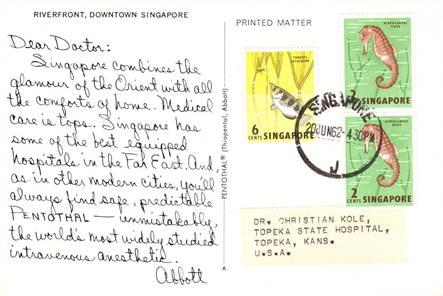 RIVERFRONT, DOWNTOWN SINGAPORE
Dear Doctor:
Singapore combines the
glamour of the Orient with all
the comforts of home. Medical
care is tops. Singapore has
some of the best equipped
hospitals in the Far East. And
as in other modern cities, you'll
always find safe, predictable
PENTOTHAL — unmistakably,
the world's most widely studied
intravenous anesthetic.
Abbott
PENTOTHAL® (Thiopental, Abbott)
PRINTED MATTER
6 CENTS SINGAPORE
SINGAPORE
2 CENTS SINGAPORE
SINGAPORE
20JUN62-430PM
J
DR. CHRISTIAN KOLE,
TOPEKA STATE HOSPITAL,
TOPEKA, KANS.
U.S.A.